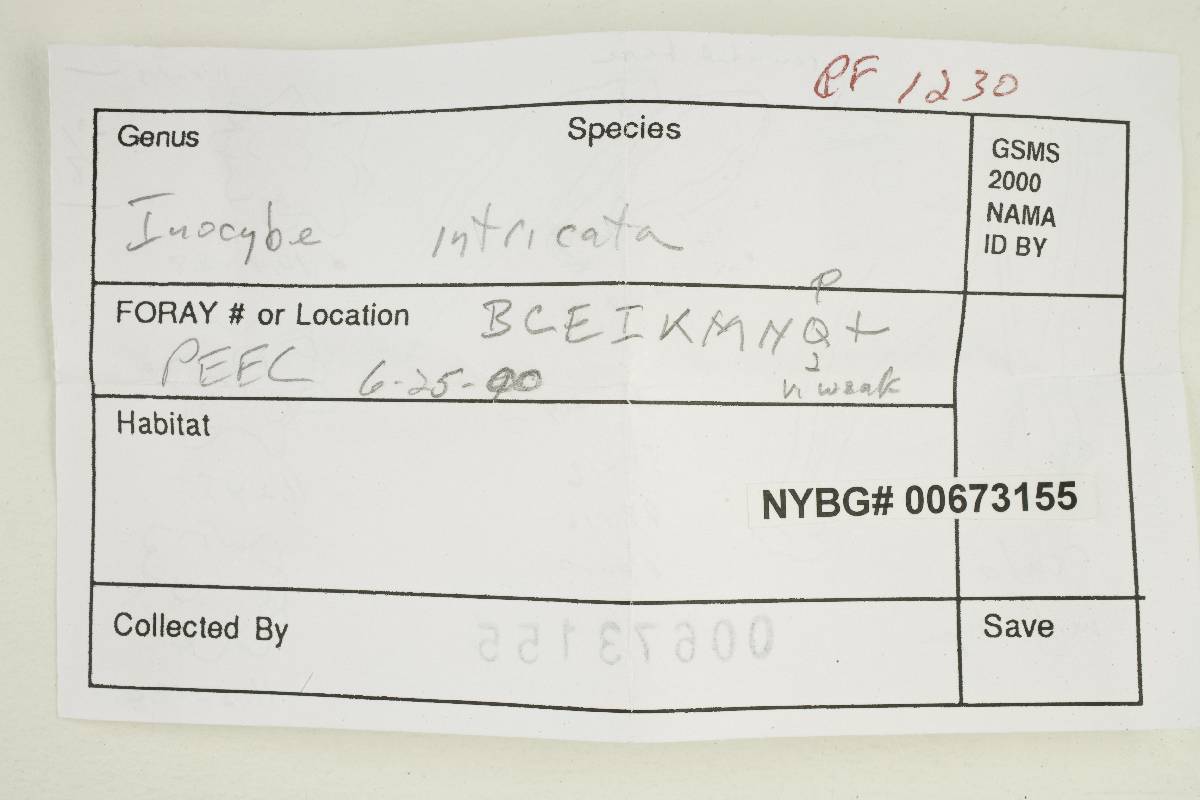 RF 1230
Genus Species
GSMS
2000
NAMA
ID BY
Inocybe intricata
P
FORAY # or Location BCEIKMNQ+
2
PEEC 6-25-90
weak
Habitat
NYBG# 00673155
Collected By
00673155
Save